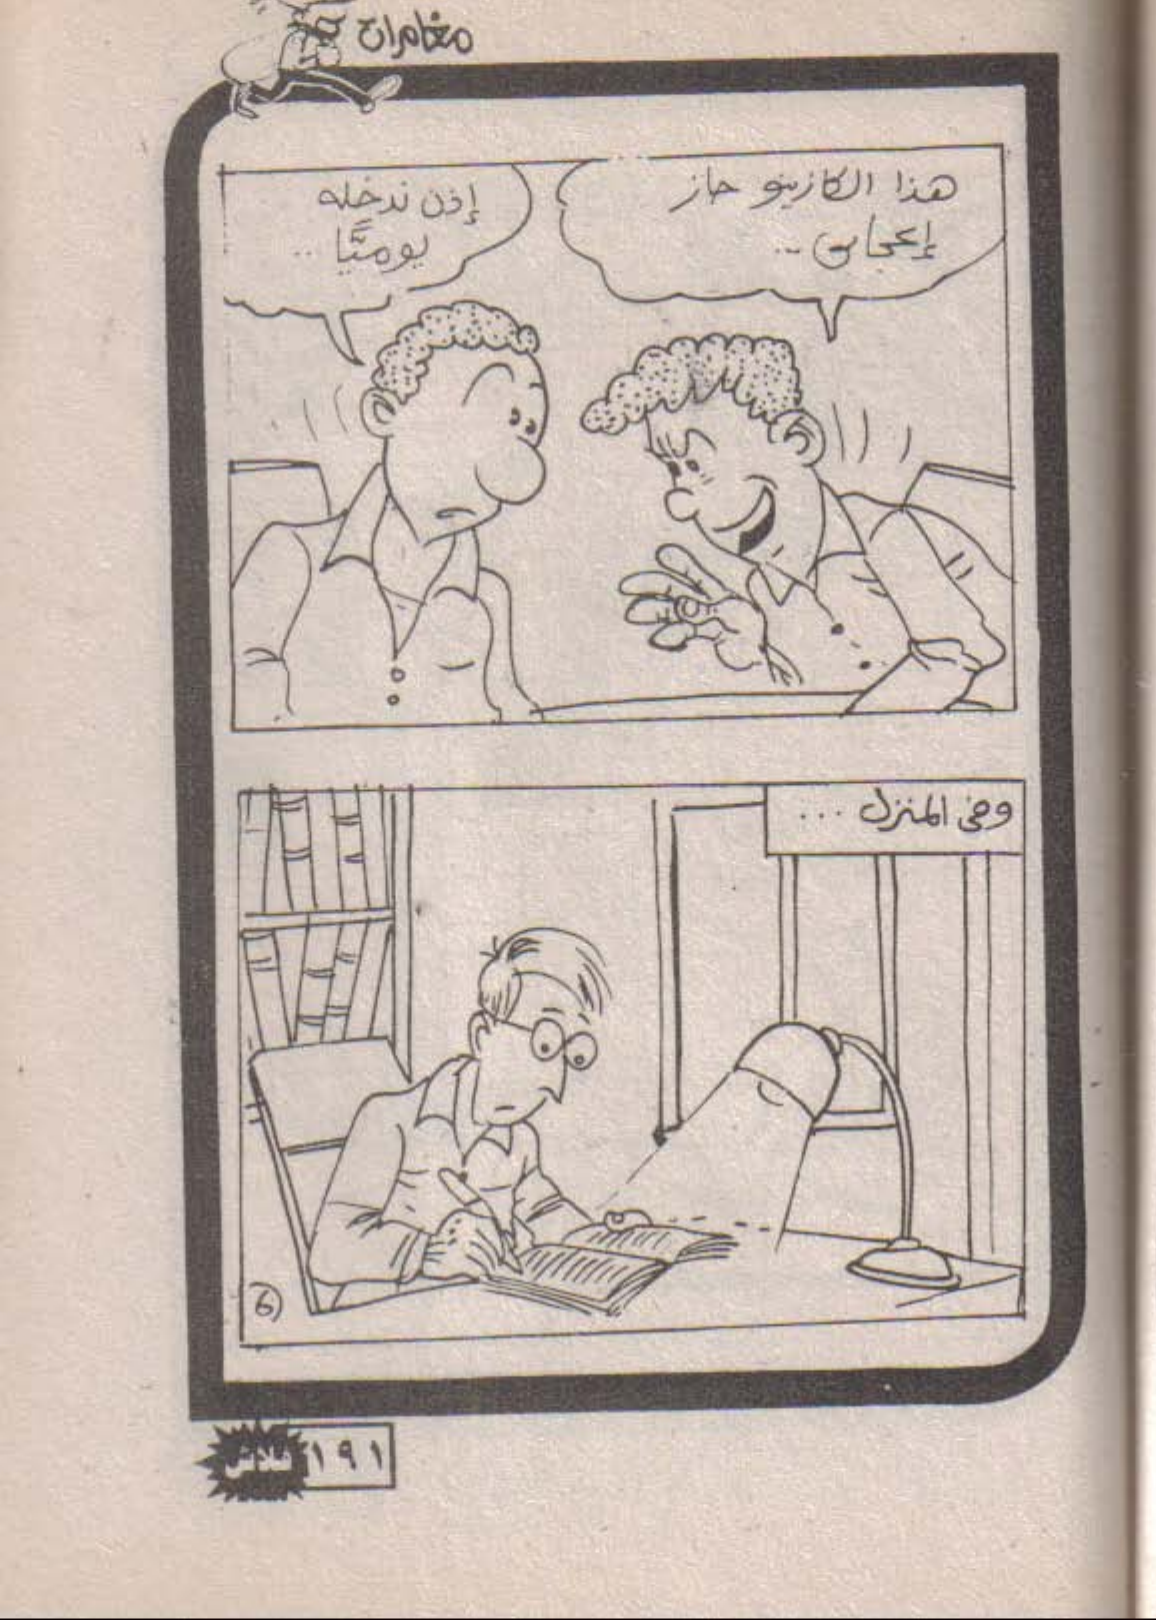 مغامرات
هذا الكازينو حاز
إعجابى ..
إذن ندخله
يوميًّا ..
وفى المنزل ...
6
١٩١
فلاش